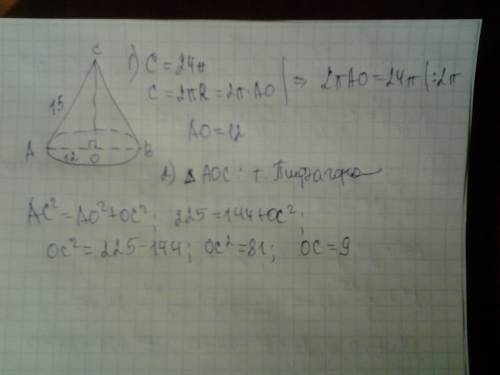 C
15
A
12
O
B
1) C = 24π
C = 2πR = 2π·AO | ⇒ 2πAO = 24π |:2π
AO = 12
2) △AOC: т. Пифагора
AC² = AO² + OC²; 225 = 144 + OC²;
OC² = 225 - 144; OC² = 81; OC = 9